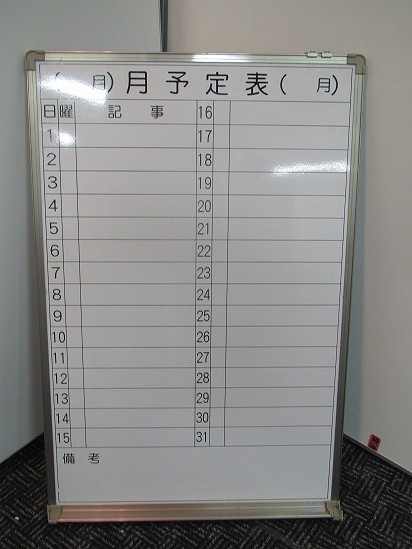 ( 月)月予定表( 月)
日 曜 記事 16
1 17
2 18
3 19
4 20
5 21
6 22
7 23
8 24
9 25
10 26
11 27
12 28
13 29
14 30
15 31
備考